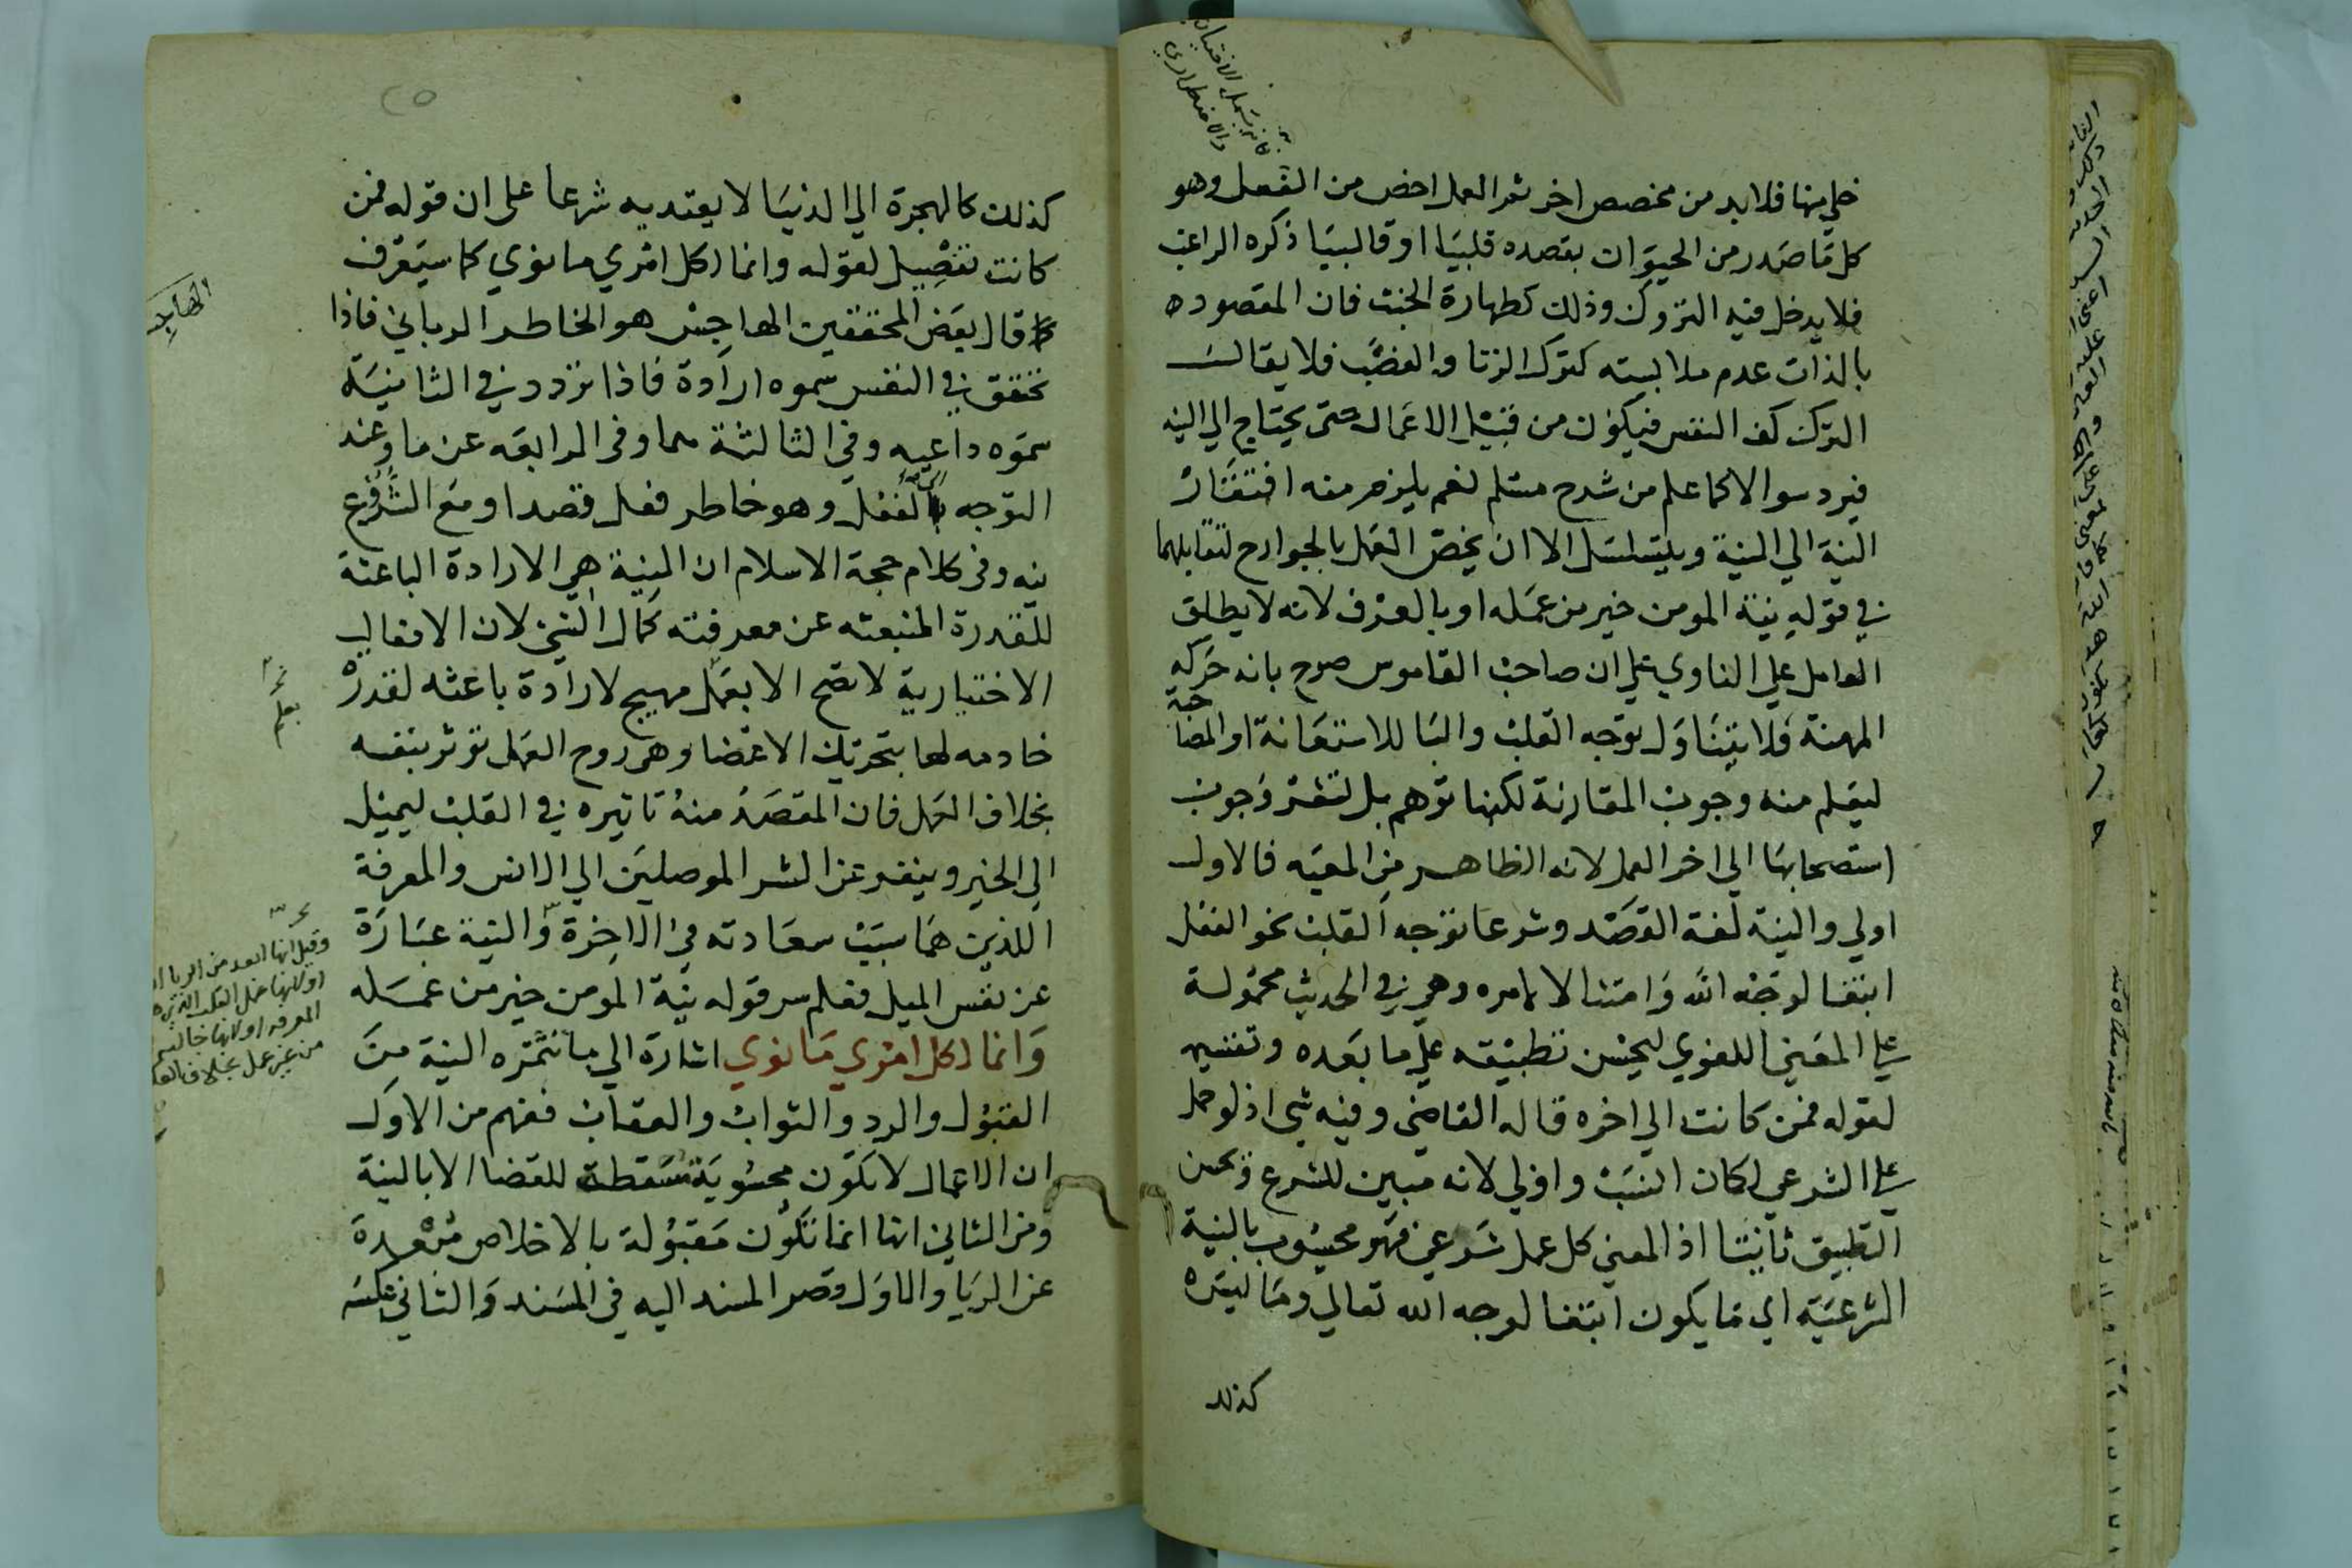 خلي منها فلابد من مخصص اخر ثم العمل اخص من الفعل وهو
كل ما صدر من الحيوان بقصده قلبيا او قالبيا ذكره الراغب
فلا يدخل فيه التروك وذلك كطهارة الخبث فان المقصوده
بالذات عدم ملابسته كترك الزنا والغضب فلا يقال
الترك كف النفس فيكون من قبيل الاعمال حتى يحتاج الي النية
فيرد سوال كما علم من شرح مسلم نعم يلزم منه افتقار
النية الي النية ويتسلسل الا ان يخص العمل بالجوارح لتقابلهما
في قوله نية المومن خير من عمله او بالعرف لانه لا يطلق
العامل علي الناوي علي ان صاحب القاموس صرح بانه حركه
المهنة فلا يتناول توجه القلب والبا للاستعانة او المصاحبة
ليعلم منه وجوب المقارنة لكنها توهم بل تقتر وجوب
استصحابها الي اخر العمل لانه الظاهر من المعيه فالاول
اولي والنية لغة القصد وشرعا توجه القلب نحو الفعل
ابتغا لوجه الله وامتثالا لامره وهي في الحديث محمولة
علي المعني اللغوي ليحسن تطبيقه علي ما بعده وتقسيمه
لقوله فمن كانت الي اخره قاله القاضي وفيه شي اذ لو حمل
علي الشرعي لكان انسب واولي لانه مبين للشرع وحسن
التطبيق ثابتا اذ المعني كل عمل شرعي فهو محسوب بالنية
الشرعية اي ما يكون ابتغا لوجه الله تعالي وما ليس
كذلك
كذلك كالهجرة الي الدنيا لا يعتد به شرعا علي ان قوله فمن
كانت تفصيل لقوله وانما لكل امري ما نوي كما سيعرف
قال بعض المحققين الهاجس هو الخاطر الرباني فاذا
تحقق في النفس سموه ارادة فاذا تردد في الثانية
سموه داعيه وفي الثالثة هما وفي الرابعه عزما وعند
التوجه الفعل وهو خاطر فعل قصدا ومع الشروع
نيه وفي كلام حجة الاسلام ان النية هي الارادة الباعثة
للقدرة المنبعثه عن معرفته كمال الشي لان الافعال
الاختيارية لا تصح الا بعمل مهيج لارادة باعثه لقدرة
خادمه لها بتحريك الاعضا وهي روح العمل تؤثر بنفسه
بخلاف العمل فان المقصد منه تاثيره في القلب ليميل
الي الخير وينفر عن الشر الموصلين الي الانس والمعرفة
اللذين هما سبب سعادته في الاخرة والنية عبارة
عن نفس الميل فعلم سر قوله نية المومن خير من عمله
وانما لكل امري ما نوي اشارة الي ما تثمره النية من
القبول والرد والثواب والعقاب ففهم من الاول
ان الاعمال لا تكون محسوبة مسقطة للقضا الا بالنية
ومن الثاني انها انما تكون مقبولة بالاخلاص مبعدة
عن الريا والاول قصر المسند اليه في المسند والثاني عكسه
بعلم
وقيل انها ابعد من الريا
او لانها عمل القلب الذي
المعرفه او لانها خالية
من غير عمل بخلاف العمل